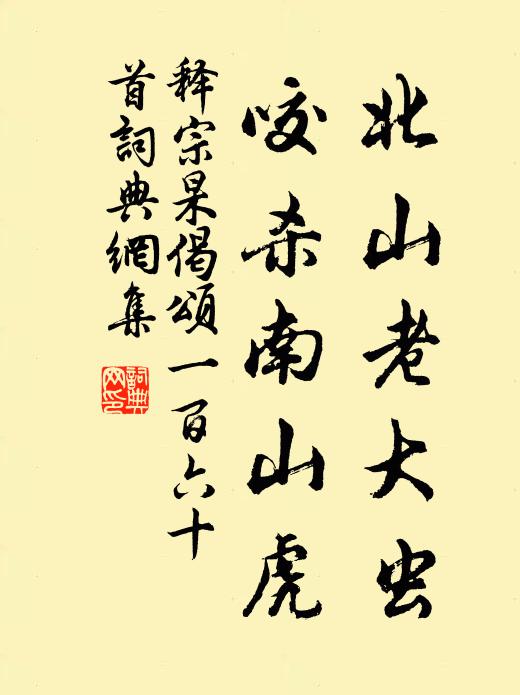 北山老大虫
咬杀南山虎
释宗杲偈颂一百六十
首詞典網集
詞典
网印